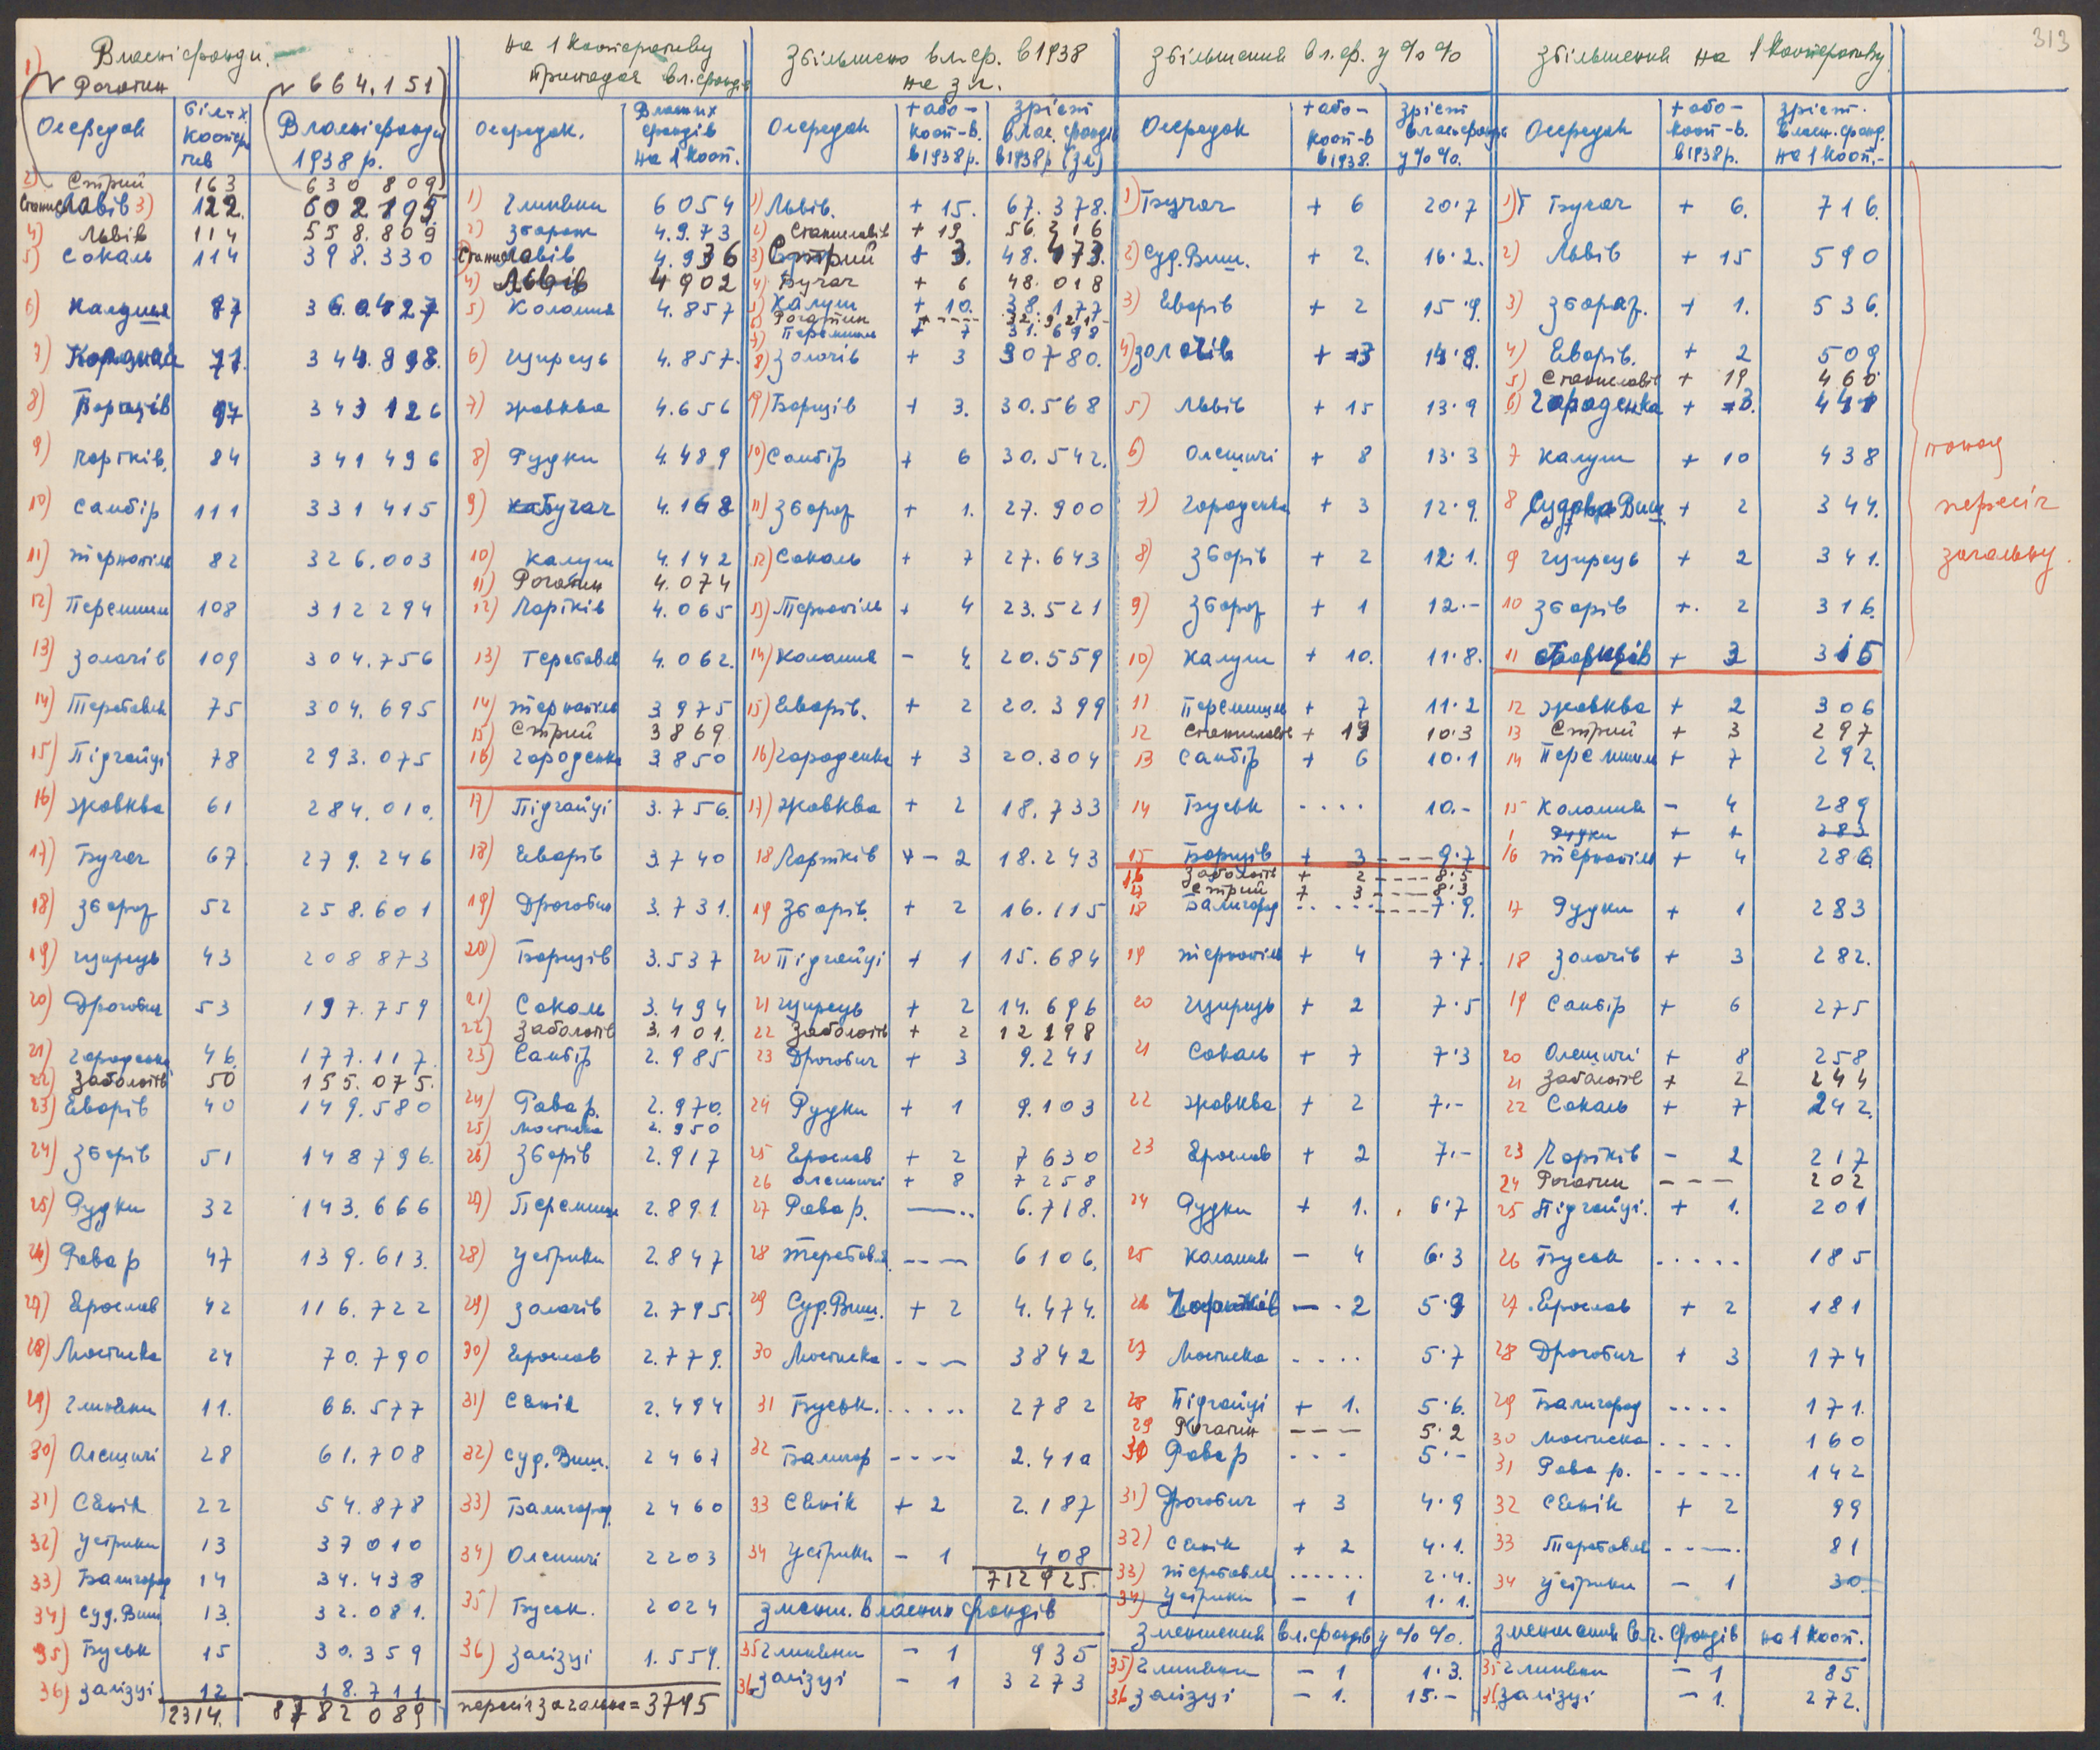 313
Власні фонди.
1) Рогатин 664.151
Осередок | більк. кооператив | Власні фонди 1938 р.
2) Стрий 163 630 809
Станиславів 3) 122. 602 195
4) Львів 114 558.809
5) Сокаль 114 398.330
6) Калуш 87 360.427
7) Коломия 71. 344.898.
8) Борщів 97 343 126
9) Чортків. 84 341 496
10) Самбір 111 331 415
11) Тернопіль 82 326.003
12) Перемишль 108 312 294
13) Золочів 109 304.756
14) Теребовля 75 304.695
15) Підгайці 78 293.075
16) Жовква 61 284.010.
17) Бучач 67. 279.246
18) Збараж 52 258.601
19) Щирець 43 208 873
20) Дрогобич 53 197.759
21) Городенка 46. 177.117.
22) Заболотів 50 155.075.
23) Яворів 40 149.580
24) Зборів 51 148 796.
25) Рудки 32 143.666
26) Рава р 47 139.613.
27) Ярослав 42 116.722
28) Мостиска 24 70.790
29) Глиняни 11. 66.577
30) Олешичі 28 61.708
31) Сянік 22 54.878
32) Устрики 13 37 010
33) Балигород 14 34.438
34) Суд. Виш. 13. 32.081.
35) Буськ 15 30.359
36) Залізці 12 18.711
2314. 8782 089
на 1 кооперативу припадає вл. фондів
Осередок. | Власних фондів на 1 кооп.
1) Глиняни 6054
2) Збараж 4.973
3) Станиславів 4.936
4) Львів 4902
5) Коломия 4.857
6) Щирець 4.857.
7) Жовква 4.656
8) Рудки 4.489
9) Бучач 4.168
10) Калуш 4.142
11) Рогатин 4.074
12) Чортків 4.065
13) Теребовля 4.062.
14) Тернопіль 3975
15) Стрий 3869
16) Городенка 3850
17) Підгайці 3.756.
18) Яворів 3.740
19) Дрогобич 3.731.
20) Борщів 3.537
21) Сокаль 3.494
22) Заболотів 3.101.
23) Самбір 2.985
24) Рава р. 2.970.
25) Мостиска 2.950
26) Зборів 2.917
27) Перемишль 2.891
28) Устрики 2.847
29) Золочів 2.795.
30) Ярослав 2.779.
31) Сянік 2.494
32) Суд. Виш. 2467
33) Балигород 2460
34) Олешичі 2203
35) Буськ. 2024
36) Залізці 1.559.
пересіч загальна = 3795
Збільшено вл. ф. в 1938 на зл.
Осередок | + або – кооп-в. в 1938 р. | Зріст влас. фондів в 1938 р (зл)
1) Львів. + 15. 67.378.
2) Станиславів + 19 56.216
3) Стрий + 3. 48.473.
4) Бучач + 6 48.018
5) Калуш + 10. 38.177
6) Рогатин ---- 32.921
7) Перемишль + 7 31.698
8) Золочів + 3 30780.
9) Борщів + 3. 30.568
10) Самбір + 6 30.542.
11) Збараж + 1. 27.900
12) Сокаль + 7 27.643
13) Тернопіль + 4 23.521
14) Коломия - 4 20.559
15) Яворів. + 2 20.399
16) Городенка + 3 20.304
17) Жовква + 2 18.733
18 Чортків - 2 18.243
19 Зборів. + 2 16.115
20 Підгайці + 1 15.684
21 Щирець + 2 14.696
22 Заболотів + 2 12198
23 Дрогобич + 3 9.241
24 Рудки + 1 9.103
25 Ярослав + 2 7630
26 Олешичі + 8 7258
27 Рава р. ---.. 6.718.
28 Теребовля ---- 6106.
29 Суд. Виш. + 2 4.474.
30 Мостиска ---- 3842
31 Буськ. ..... 2782
32 Балигор ---- 2.410
33 Сянік + 2 2.187
34 Устрики - 1 408
712925.
Зменш. власних фондів
35 Глиняни - 1 935
36 Залізці - 1 3273
Збільшення вл. ф. у %%
Осередок | + або – кооп-в в 1938. | Зріст власн. фондів у %%.
1) Бучач + 6 20·7
2) Суд. Виш. + 2. 16·2.
3) Яворів + 2 15·9.
4) Золочів + 3 14·9.
5) Львів + 15 13·9
6) Олешичі + 8 13·3
7) Городенка + 3 12·9.
8) Зборів + 2 12·1.
9) Збараж + 1 12.–
10) Калуш + 10. 11·8.
11 Перемишль + 7 11·2
12 Станиславів + 19 10·3
13 Самбір + 6 10·1
14 Буськ .... 10.-
15 Борщів + 3 --- 9·7
16 Заболотів + 2 ---- 8·5
17 Стрий + 3 ---- 8·3
18 Балигород ..... ---- 7·9.
19 Тернопіль + 4 7·7.
20 Щирець + 2 7·5
21 Сокаль + 7 7·3
22 Жовква + 2 7.–
23 Ярослав + 2 7.–
24 Рудки + 1. 6·7
25 Коломия - 4 6·3
26 Чортків - 2 5·9
27 Мостиска .... 5·7
28 Підгайці + 1. 5·6.
29 Рогатин --- 5·2
30 Рава р --- 5·–
31) Дрогобич + 3 4·9
32) Сянік + 2 4·1.
33) Теребовля ...... 2·4.
34) Устрики - 1 1·1.
Зменшення вл. фондів у %%.
35) Глиняни - 1 1·3.
36 Залізці - 1. 15.–
Збільшення на 1 кооперативу
Осередок | + або – кооп-в. в 1938 р. | Зріст. власн. фонд. на 1 кооп.-
1) Бучач + 6. 716.
2) Львів + 15 590
3) Збараж. + 1. 536.
4) Яворів. + 2 509
5) Станиславів + 19 460
6) Городенка + 3. 441
7 Калуш + 10 438
8 Судова Виш. + 2 344.
9 Щирець + 2 341.
10 Зборів + 2 316.
11 Борщів + 3 315
12 Жовква + 2 306
13 Стрий + 3 297
14 Перемишль + 7 292.
15 Коломия - 4 289
Рудки + 1 283
16 Тернопіль + 4 286.
17 Рудки + 1 283
18 Золочів + 3 282.
19 Самбір + 6 275
20 Олешичі + 8 258
21 Заболотів + 2 244
22 Сокаль + 7 242.
23 Чортків - 2 217
24 Рогатин --- 202
25 Підгайці. + 1. 201
26 Буськ ..... 185
27 Ярослав + 2 181
28 Дрогобич + 3 174
29 Балигород .... 171.
30 Мостиска .... 160
31 Рава р. ----- 142
32 Сянік + 2 99
33 Теребовля ----. 81
34 Устрики - 1 30
Зменшення вл. фондів на 1 кооп.
35 Глиняни - 1 85
36 Залізці - 1. 272.
понад
пересіч
загальну.